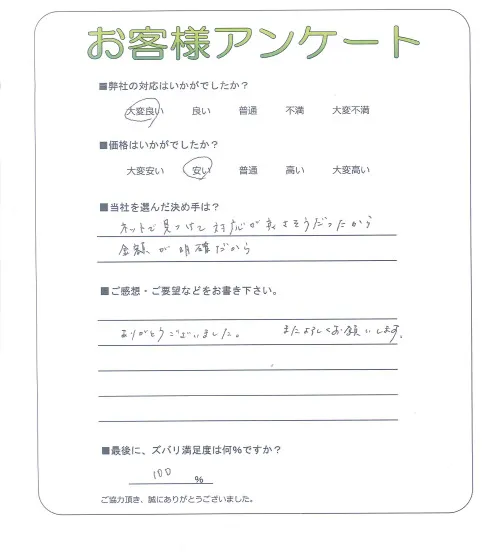 お客様アンケート
■弊社の対応はいかがでしたか？
大変良い 良い 普通 不満 大変不満
■価格はいかがでしたか？
大変安い 安い 普通 高い 大変高い
■当社を選んだ決め手は？
ネットで見つけて対応が良さそうだったから
金額が明確だから
■ご感想・ご要望などをお書き下さい。
ありがとうございました。 またよろしくお願いします。
■最後に、ズバリ満足度は何%ですか？
100 %
ご協力頂き、誠にありがとうございました。